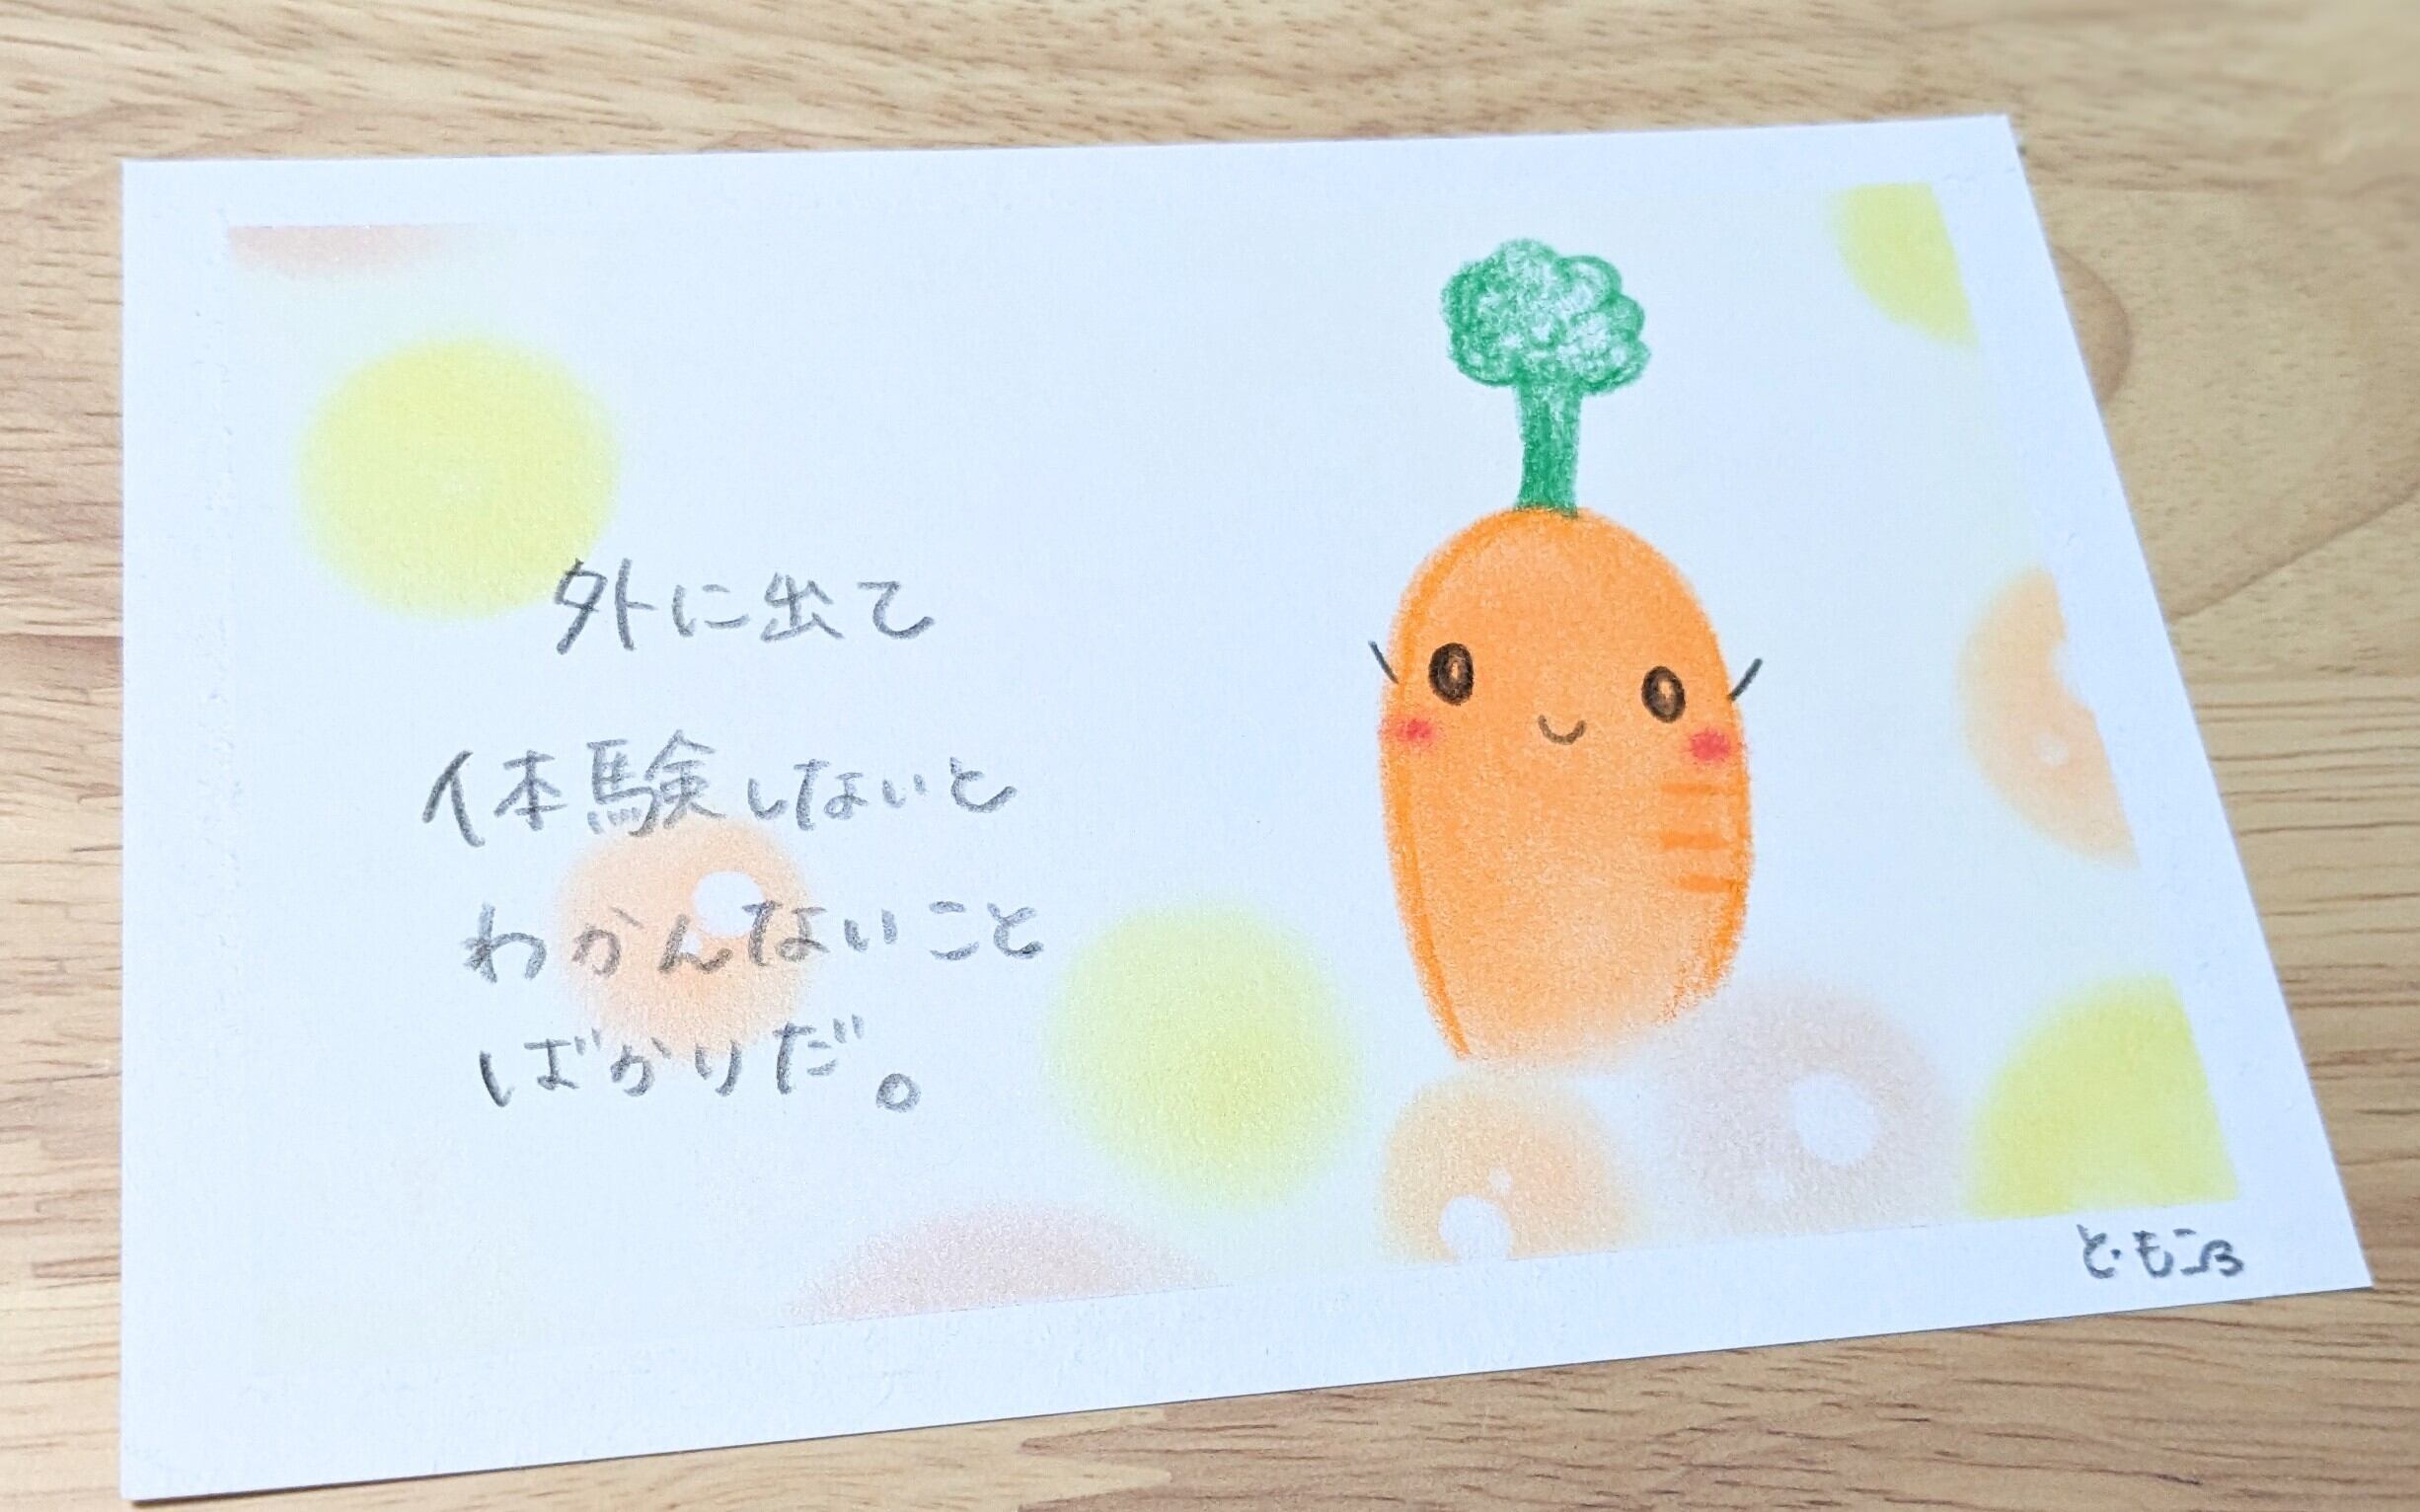 外に出て
体験しないと
わかんないこと
ばかりだ。
と・もこ